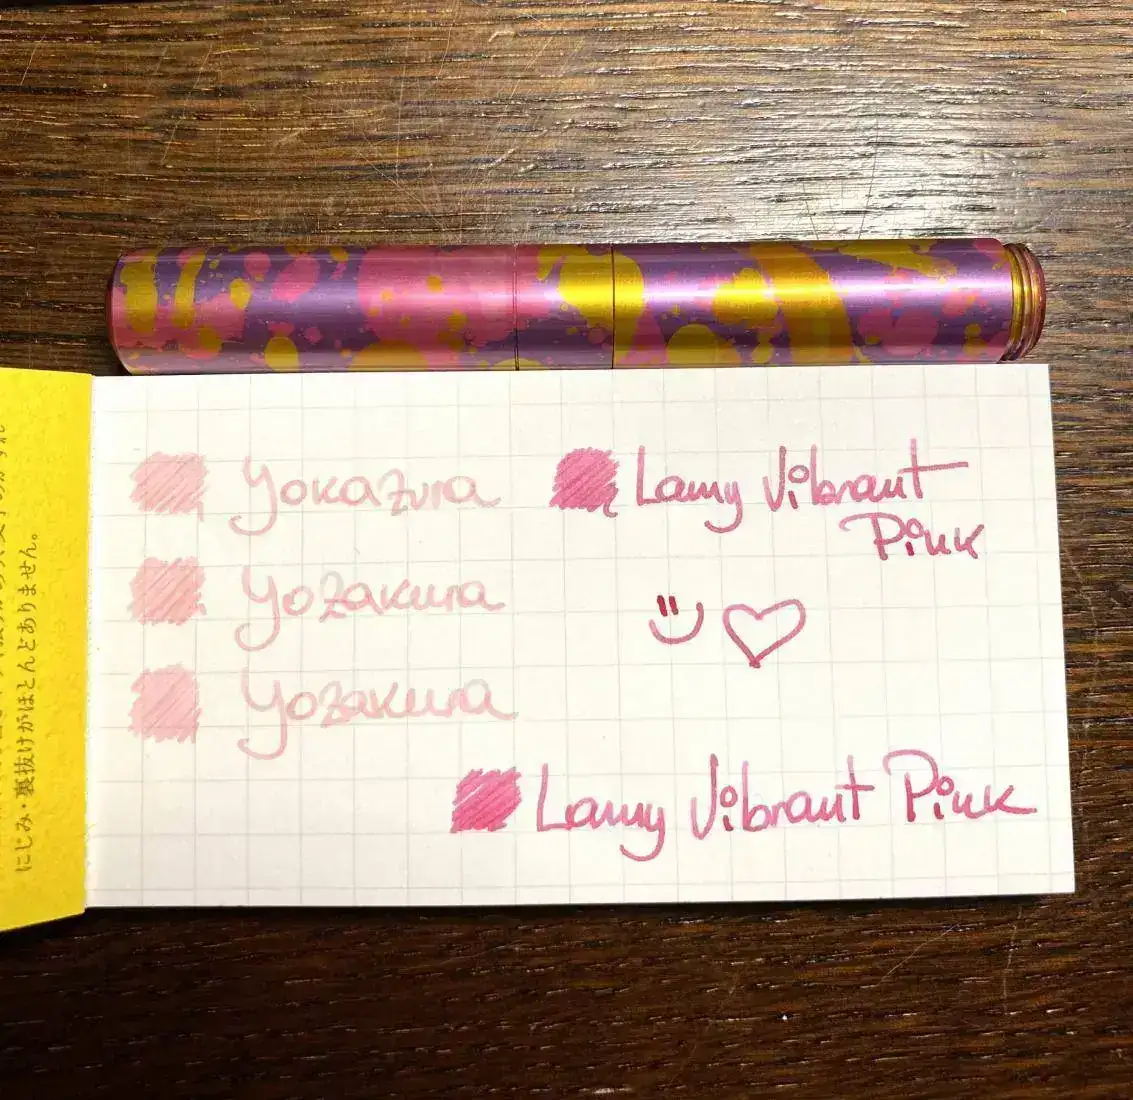 Yokazura
Yozakura
Yozakura
Lamy Vibrant
Pink
Lamy Vibrant Pink
にじみ・裏抜けがほとんどありません。